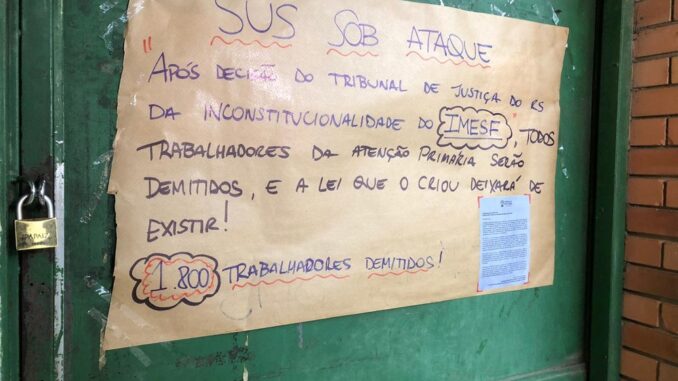 SUS SOB ATAQUE
"APÓS DECISÃO DO TRIBUNAL DE JUSTIÇA DO RS
DA INCONSTITUCIONALIDADE DO IMESF, TODOS
TRABALHADORES DA ATENÇÃO PRIMÁRIA SERÃO
DEMITIDOS, E A LEI QUE O CRIOU DEIXARÁ DE
EXISTIR!
1.800 TRABALHADORES DEMITIDOS!
PAPAIZ